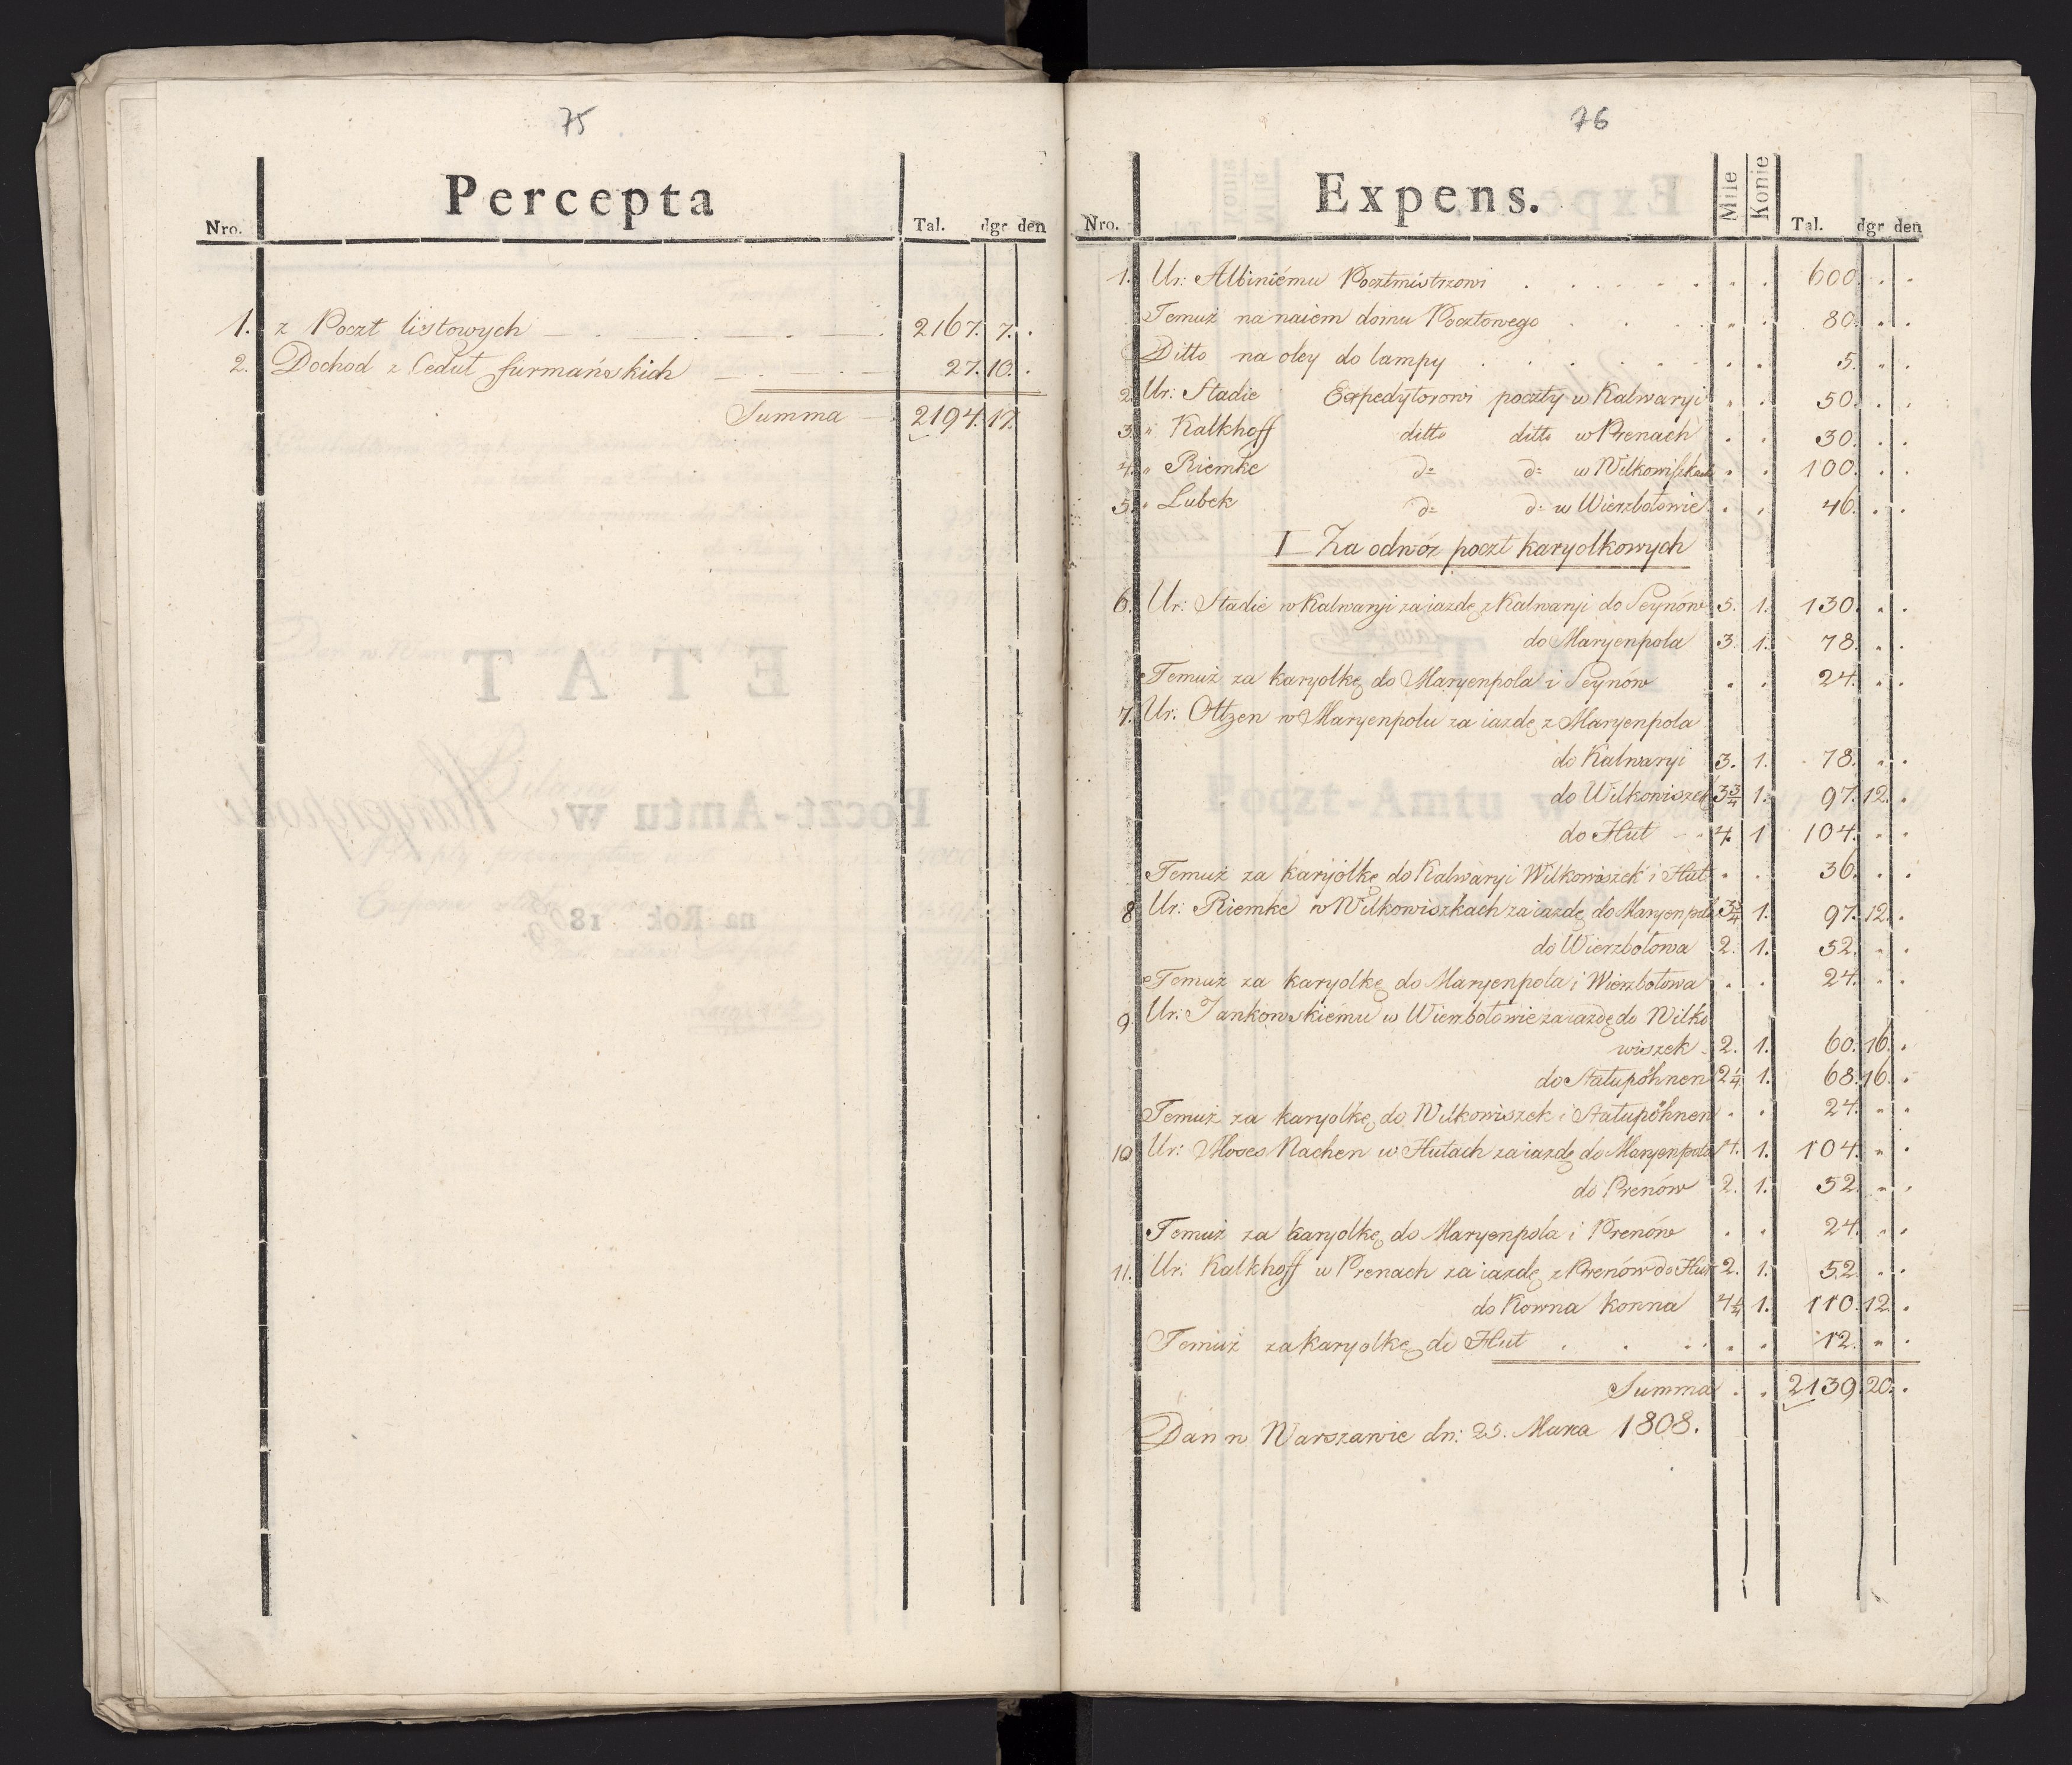 75
Percepta
Nro. Tal. dgr den
1. z Poczt listowych 2167. 7. .
2. Dochod z Cedul furmańskich 27. 10. .
Summa 2194. 17.
76
Expens.
Nro. Mile Konie Tal. dgr den
1. Ur: Albiniému Pocztmistrzowi . . . . . . . . 600. . .
Temuż na naiem domu Pocztowego . . . . . . 80. " .
Ditto na oley do lampy . . . . . . . . 5. " .
2. Ur: Stadie Expedytorowi poczty w Kalwaryi " . 50. . .
3. " Kalkhoff ditto ditto w Prenach . . 30. . .
4. " Riemke d= d= w Wilkowiszkach . . 100. . .
5. " Lubek d= d= w Wierzbołowie . . 46. . .
I Za odwóz poczt karyolkowych
6. Ur: Stadie w Kalwaryi za iazdę z Kalwaryi do Seynów 5. 1. 130. " .
do Maryenpola 3. 1. 78. " .
Temuż za karyolkę do Maryenpola i Seynów . . 24. " .
7. Ur: Ottzen w Maryenpolu za iazdę z Maryenpola
do Kalwaryi 3. 1. 78. " .
do Wilkowiszek 3¾ 1. 97. 12. .
do Hut 4. 1 104. " .
Temuż za karyolkę do Kalwaryi Wilkowiszek i Hut . . 36. . .
8 Ur: Riemke w Wilkowiszkach za iazdę do Maryenpola 3¾ 1. 97. 12. .
do Wierzbołowa 2. 1. 52. " .
Temuż za karyolkę do Maryenpola i Wierzbołowa . . 24. " .
9. Ur: Jankowskiému w Wierzbołowie za iazdę do Wilko
wiszek 2. 1. 60. 16. .
do Stałupöhnen 2¼ 1. 68. 16. .
Temuż za karyolkę do Wilkowiszek i Stałupöhnen . . 24. " "
10 Ur: Moses Nachen w Hutach za iazdę do Maryenpola 4. 1. 104. " .
do Prenów 2. 1. 52. " .
Temuż za karyolkę do Maryenpola i Prenów . . 24. " .
11. Ur: Kalkhoff w Prenach za iazdę z Prenów do Hut 2. 1. 52. " .
do Kowna konna 4¼ 1. 110. 12. .
Temuż za karyolkę do Hut . . . . . . 12. " .
Summa . . 2139. 20. .
Dan w Warszawie dn: 25. Marca 1808.